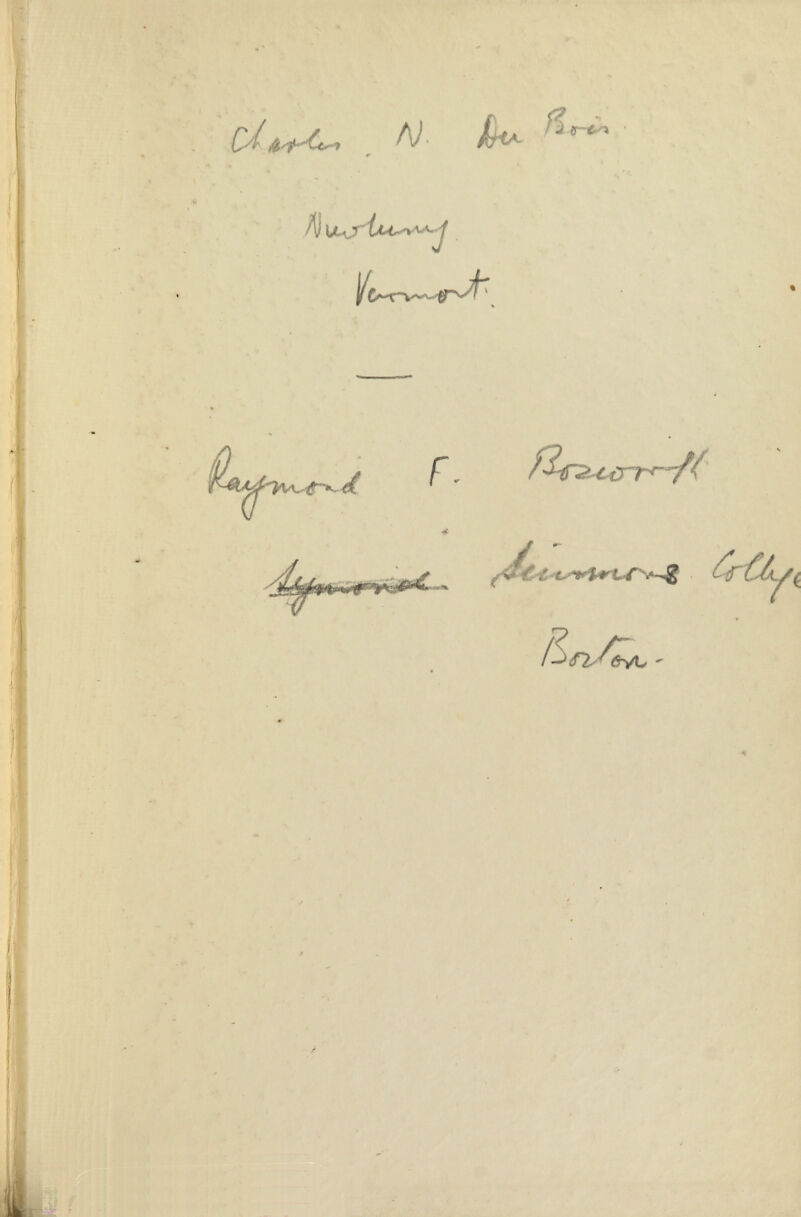 Charles. N. Du Bois
Newbury
Vermont.
Raymond F. Bosworth
Symonds Simmons College
Boston.